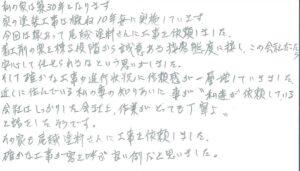 私の家は築30年となります
家の塗装工事は概ね10年毎に実施しています
今回は縁あって尾績塗料さんに工事を依頼しました。
最初の案を積る段階から誠意ある接客態度に接し、この会社だったら
安心して任せられるなという思いがしました。
そして確かな工事の進行状況に信頼感が一層増していきました。
近くに住んでいる私の妻の知りあいに妻が〝私達が依頼している
会社はしっかりした会社よ、作業がとっても丁寧よ〟
と話をしたそうです。
その家も尾績塗料さんに工事を依頼しました。
確かな工事が客を呼ぶ良い例だと思いました。